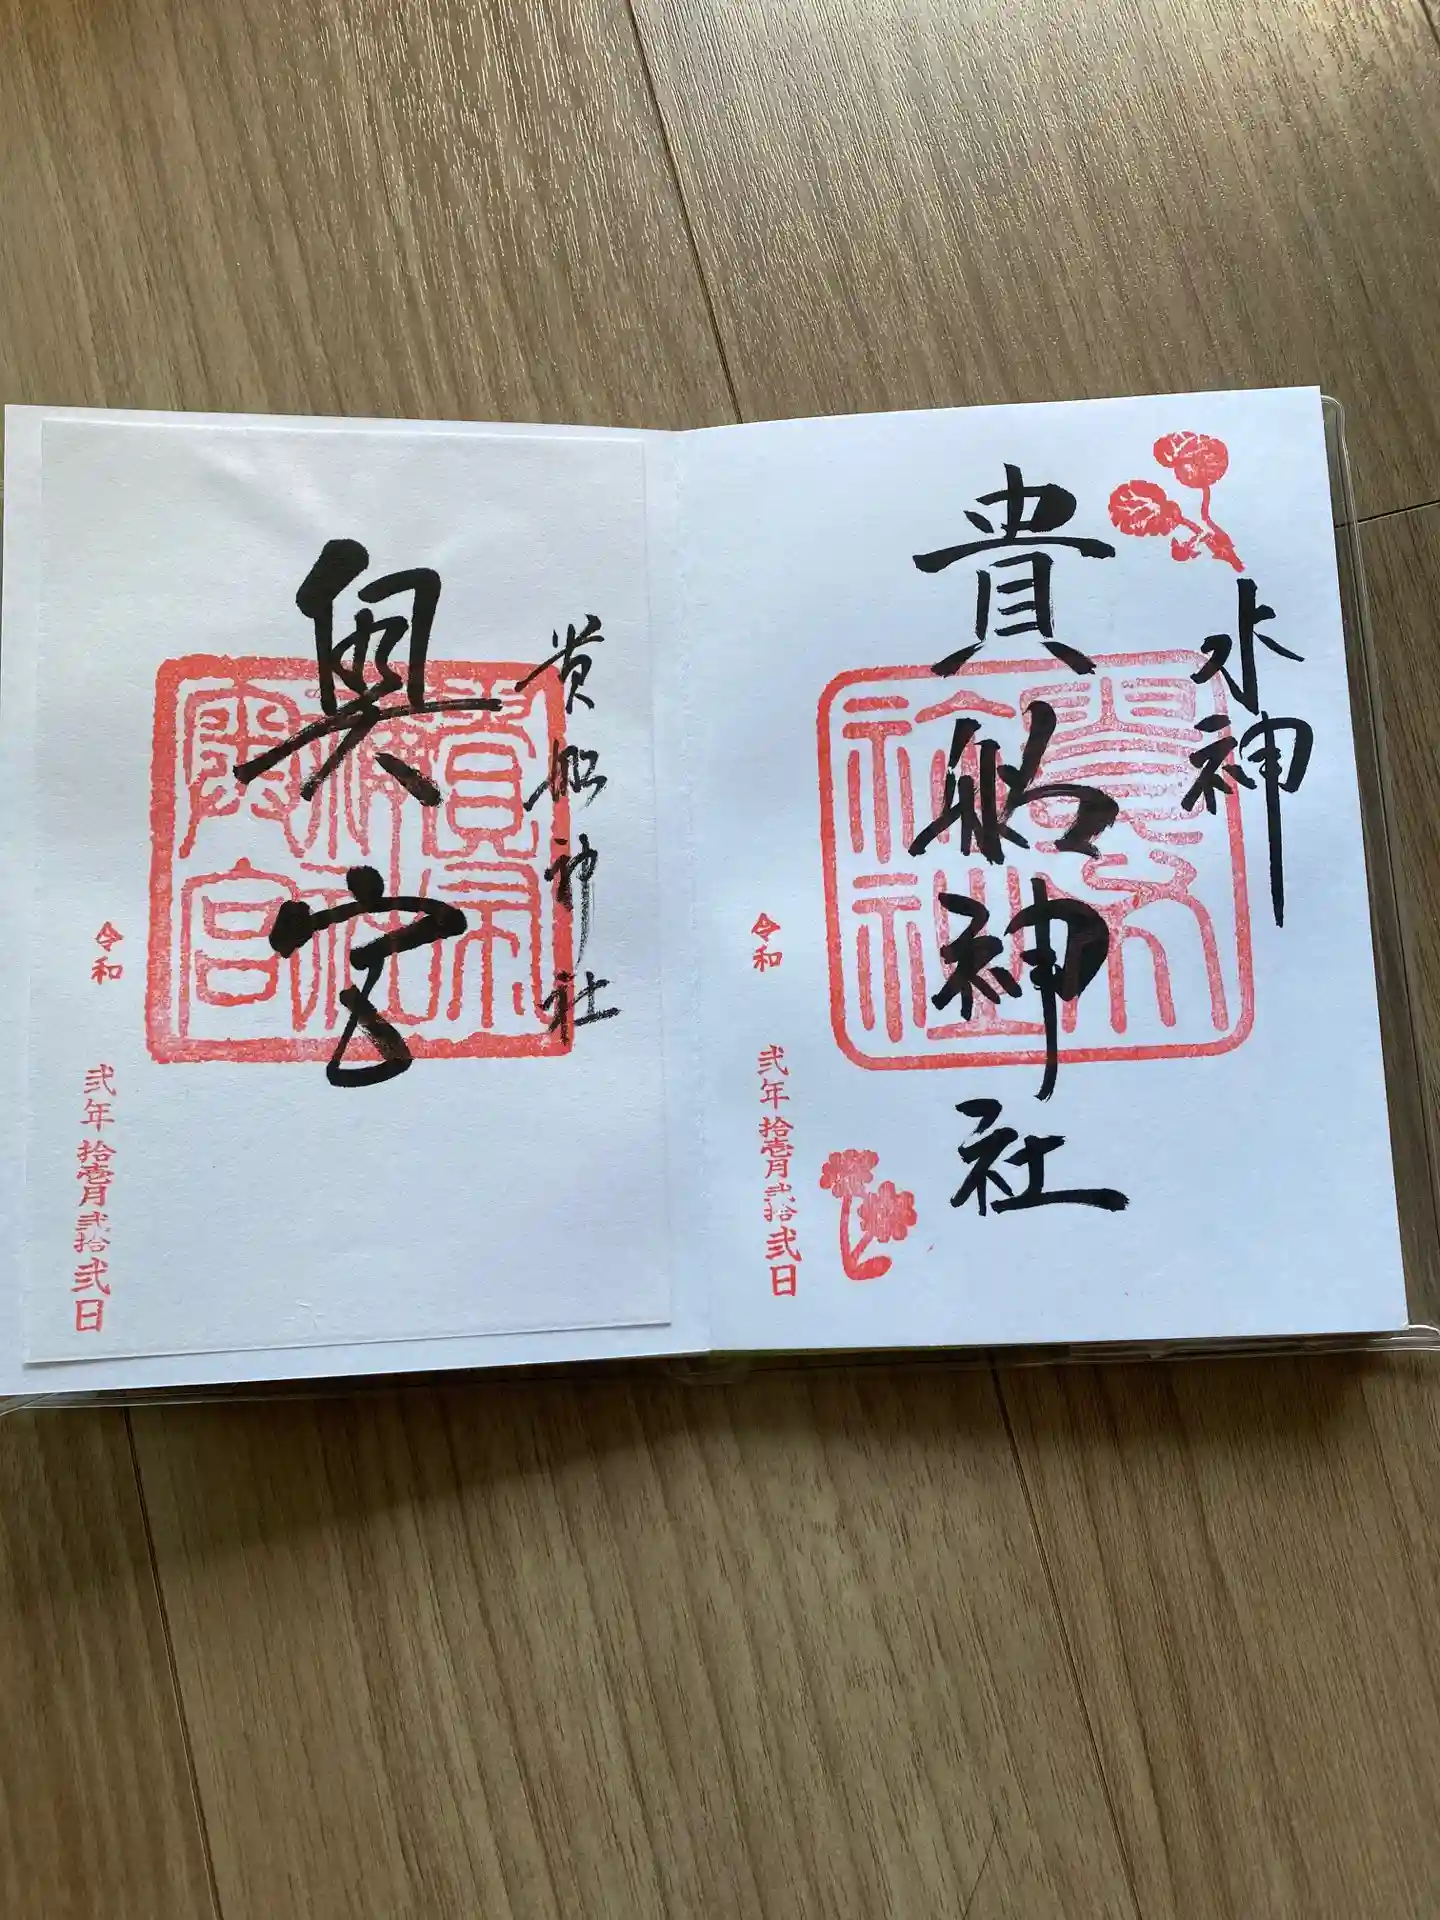 水神
貴船神社
令和
弐年拾壱月弐拾弐日
貴船神社
奥宮
令和
弐年拾壱月弐拾弐日